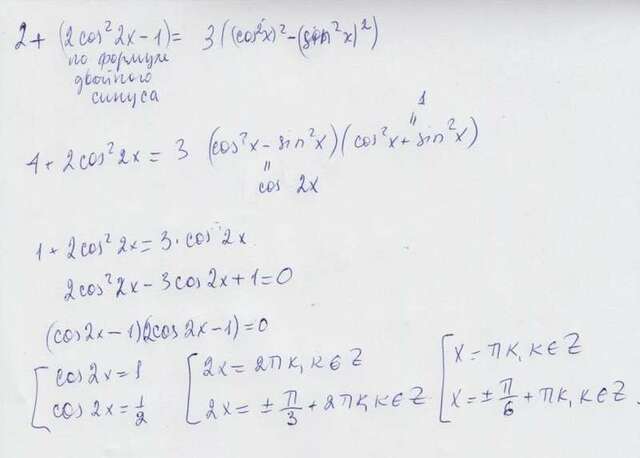 2 + (2cos²2x − 1) = 3((cos²x)² − (sin²x)²)
по формуле
двойного
синуса
1
"
1 + 2cos²2x = 3 (cos²x − sin²x)(cos²x + sin²x)
"
cos 2x
1 + 2cos²2x = 3·cos 2x
2cos²2x − 3cos2x + 1 = 0
(cos2x − 1)(2cos2x − 1) = 0
[ cos2x = 1 [ 2x = 2πk, k ∈ Z [ x = πk, k ∈ Z
cos2x = 1/2 2x = ± π/3 + 2πk, k ∈ Z x = ± π/6 + πk, k ∈ Z.